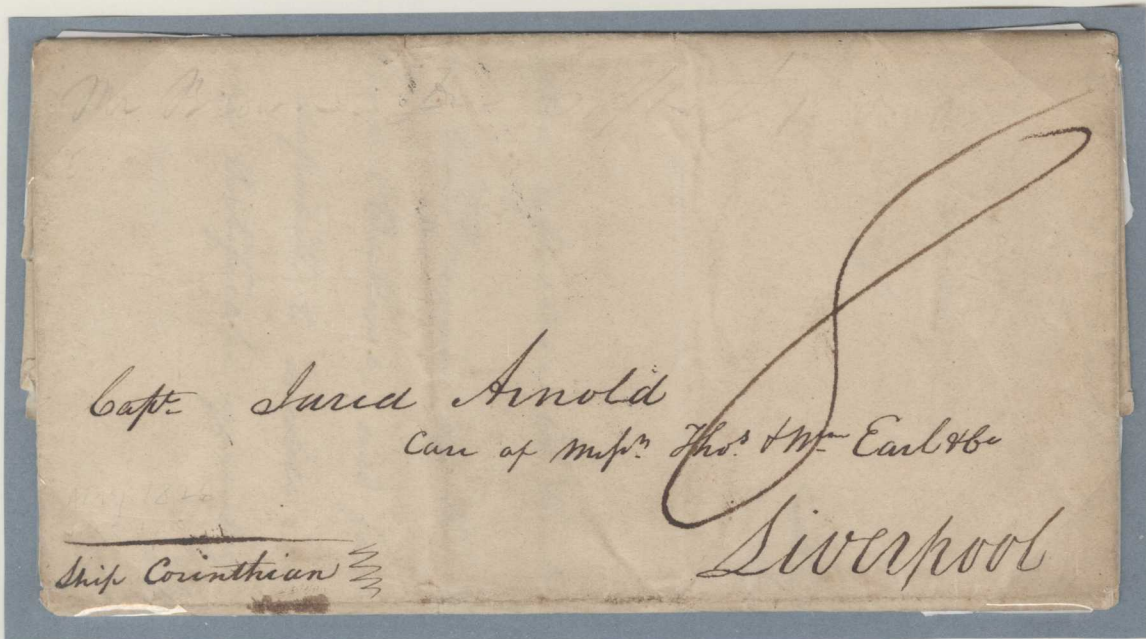 8
Capt Jared Arnold
Care of Messrs Thos & Wm Earl & Co
Liverpool
Ship Corinthian